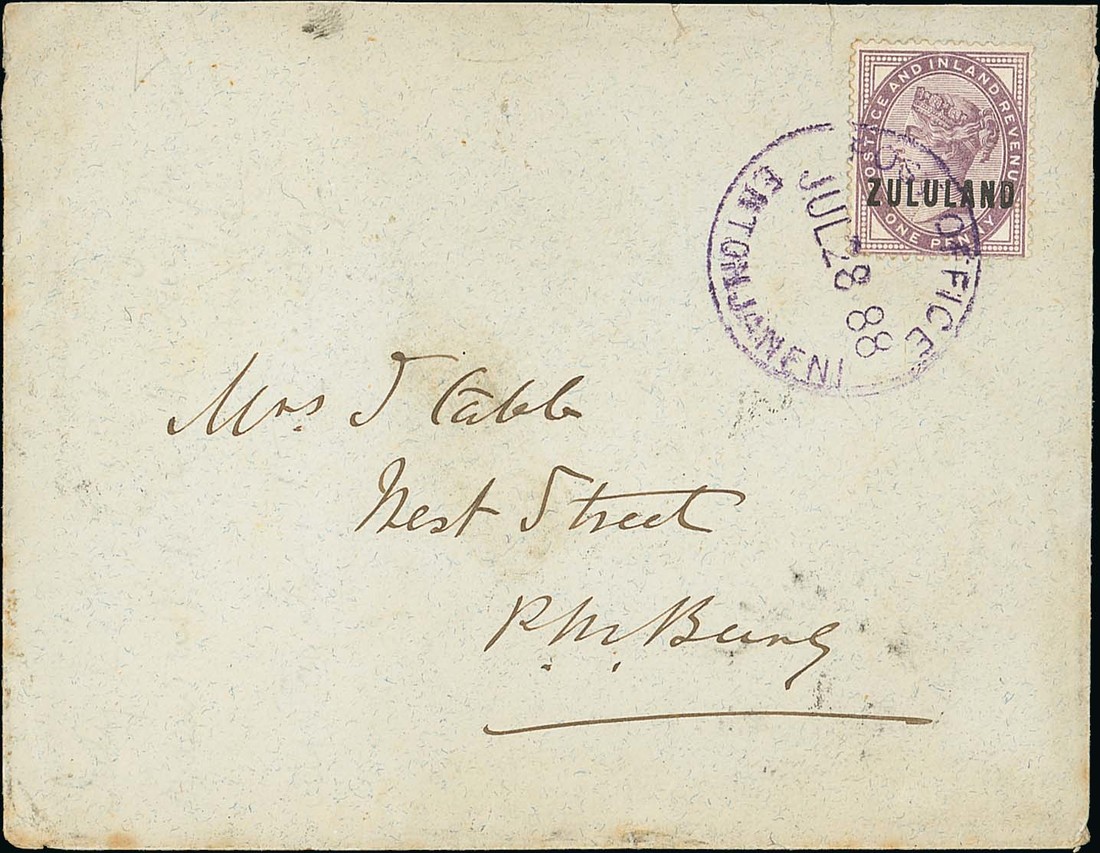 POSTAGE AND INLAND REVENUE
ZULULAND
ONE PENNY
POST OFFICE
ENTONJANENI
JUL 28 88
Mrs. J Cabb
West Street
P. M. Burg